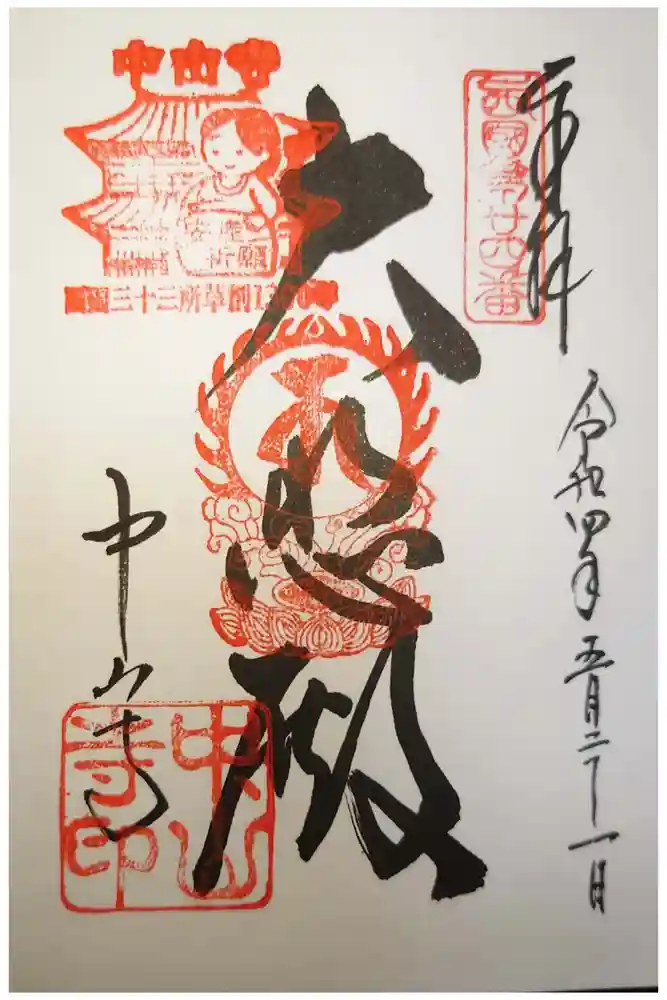 奉拝
西國第廿四番
令和四年五月二十一日
大悲殿
中山寺
安産
祈願
西国三十三所草創1300年
中山寺
中山寺印